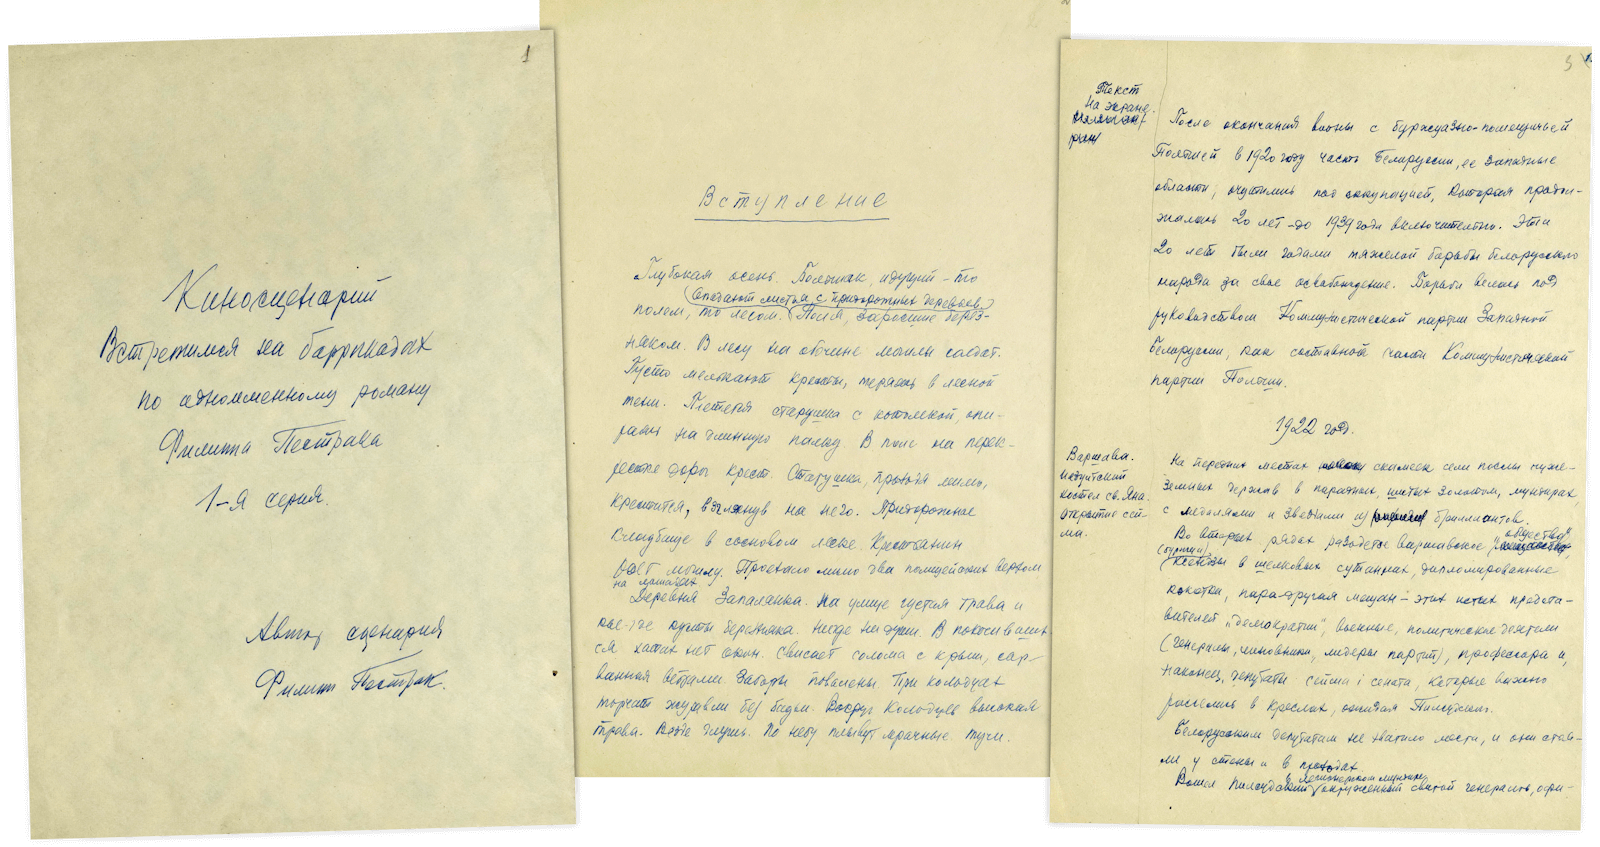 1
Киносценарий
Встретимся на баррикадах
по одноименному роману
Филиппа Пестрака
1-я серия.
Автор сценария
Филипп Пестрак.
Вступление
Глубокая осень. Большак, идущий – то
(Опадают листья с придорожных деревьев)
полем, то лесом. Поля, заросшие берез-
няком. В лесу на обочине могилы солдат.
Густо мелькают кресты, теряясь в лесной
тени. Плетется старушка с котомкой, опи-
раясь на длинную палку. В поле на перек-
рестке дорог крест. Старушка, проходя мимо,
крестится, взглянув на него. Придорожное
кладбище в сосновом леске. Крестьянин
роет могилу. Проехало мимо два полицейских верхом
на лошадях
Деревня Запалянка. На улице густая трава и
кое-где кусты березняка. Нигде ни души. В покосивших-
ся хатах нет окон. Свисает солома с крыш, сор-
ванная ветрами. Заборы повалены. При колодцах
торчат журавли без бадьи. Вокруг колодцев высокая
трава. Везде глушь. По небу плывут мрачные тучи.
3
Текст
на экране.
После окончания войны с буржуазно-помещичьей
Польшей в 1920 году часть Белоруссии, ее западные
области, очутились под оккупацией, которая продол-
жалась 20 лет – до 1939 года включительно. Эти
20 лет были годами тяжелой борьбы белорусского
народа за свое освобождение. Борьба велась под
руководством Коммунистической партии Западной
Белоруссии, как составной части Коммунистической
партии Польши.
1922 год.
Варшава.
Иезуитский
костел св. Яна.
Открытие сей-
ма.
На передних местах скамеек сели послы чуже-
земных держав в парадных, шитых золотом, мундирах,
с медалями и звездами из бриллиантов.
Во вторых рядах разодетое варшавское "общество"
(буржуа)
ксендзы в шелковых сутаннах, дипломированные
кокотки, пара-другая мещан – этих истых предста-
вителей "демократии", военные, политические деятели
(генералы, чиновники, лидеры партий), профессора и,
наконец, депутаты сейма і сената, которые важно
расселись в креслах, ожидая Пилсудского.
Белорусским депутатам не хватило мест, и они ста-
ли у стены и в проходах.
в легионерском мундире
Вошел Пилсудский окруженный свитой генералов, офи-